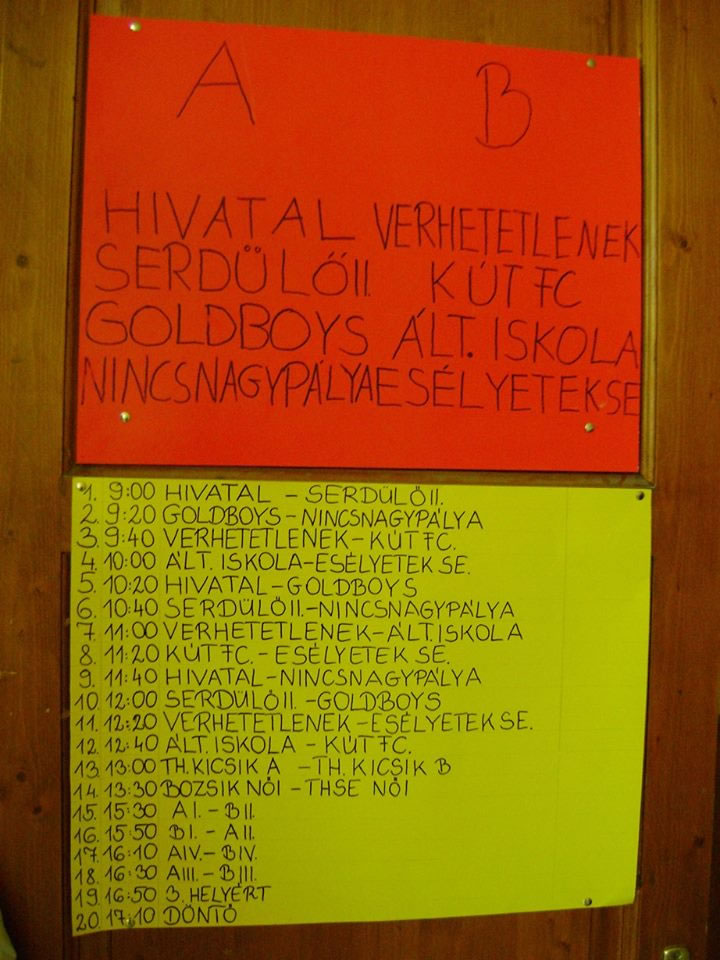 A B
HIVATAL VERHETETLENEK
SERDÜLŐII. KÚT FC
GOLDBOYS ÁLT. ISKOLA
NINCSNAGYPÁLYA ESÉLYETEK SE
1. 9:00 HIVATAL - SERDÜLŐII.
2. 9:20 GOLDBOYS - NINCSNAGYPÁLYA
3. 9:40 VERHETETLENEK - KÚT FC.
4. 10:00 ÁLT. ISKOLA - ESÉLYETEK SE.
5. 10:20 HIVATAL - GOLDBOYS
6. 10:40 SERDÜLŐII. - NINCSNAGYPÁLYA
7. 11:00 VERHETETLENEK - ÁLT.ISKOLA
8. 11:20 KÚT FC. - ESÉLYETEK SE.
9. 11:40 HIVATAL - NINCSNAGYPÁLYA
10. 12:00 SERDÜLŐII. - GOLDBOYS
11. 12:20 VERHETETLENEK - ESÉLYETEK SE.
12. 12:40 ÁLT. ISKOLA - KÚT FC.
13. 13:00 TH. KICSIK A - TH. KICSIK B
14. 13:30 BOZSIK NŐI - THSE NŐI
15. 15:30 A I. - B II.
16. 15:50 B I. - A II.
17. 16:10 A IV. - B IV.
18. 16:30 A III. - B III.
19. 16:50 3. HELYÉRT
20. 17:10 DÖNTŐ